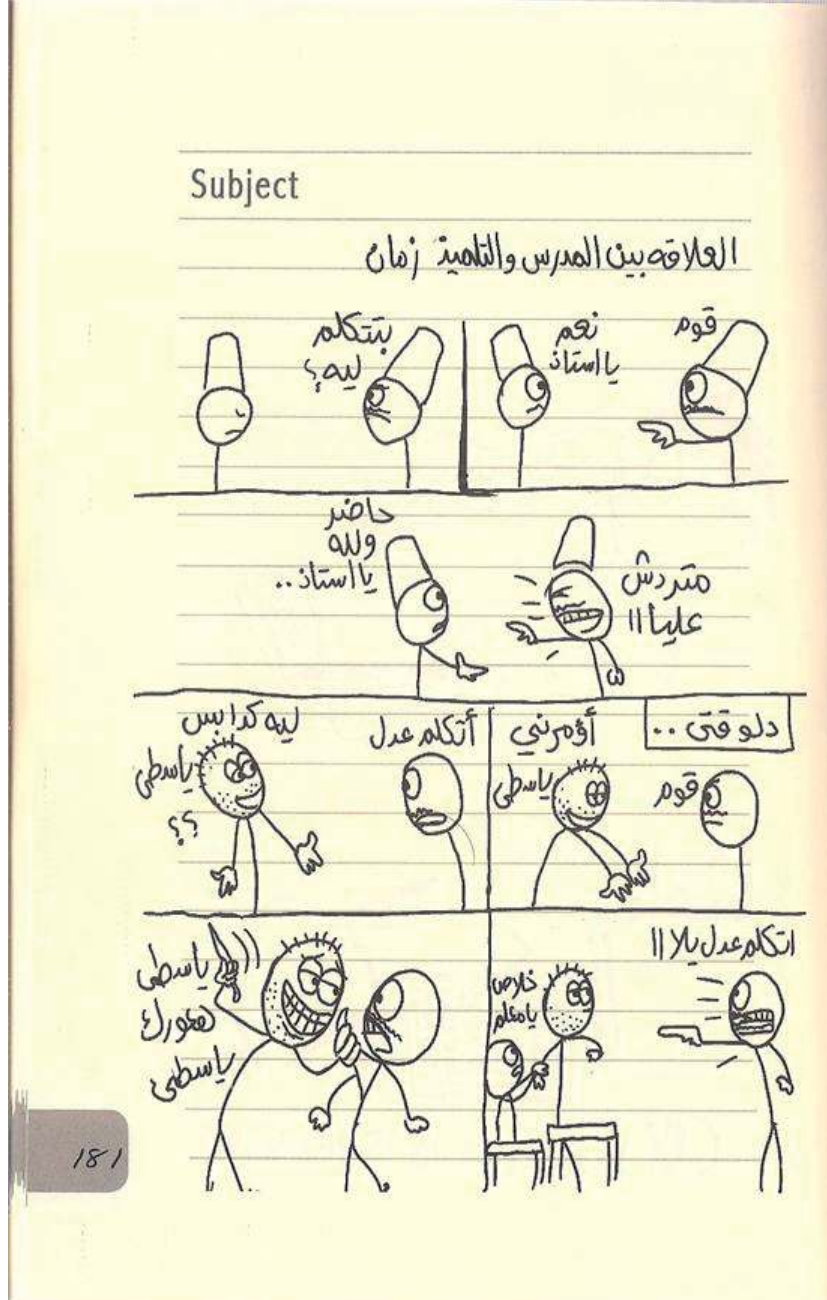 Subject
العلاقه بين المدرس والتلميذ زمان
قوم
نعم
يا استاذ
بتتكلم
ليه؟
متردش
عليا !!
حاضر
ولله
يا استاذ..
دلوقتى ..
قوم
أؤمرني
ياسطى
أتكلم عدل
ليه كدا بس
ياسطى
؟؟
اتكلم عدل يالا !!
خلاص
يا معلم
ياسطى
هعورك
ياسطى
181